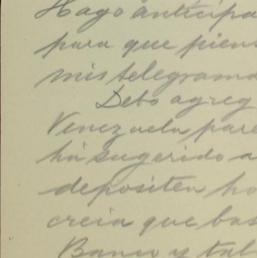 Hago anticipa
para que pien
mis telegrama
Debo agreg
Venezuela pare
ha sugerido a
depositen ho
creia que bas
Banco y tal